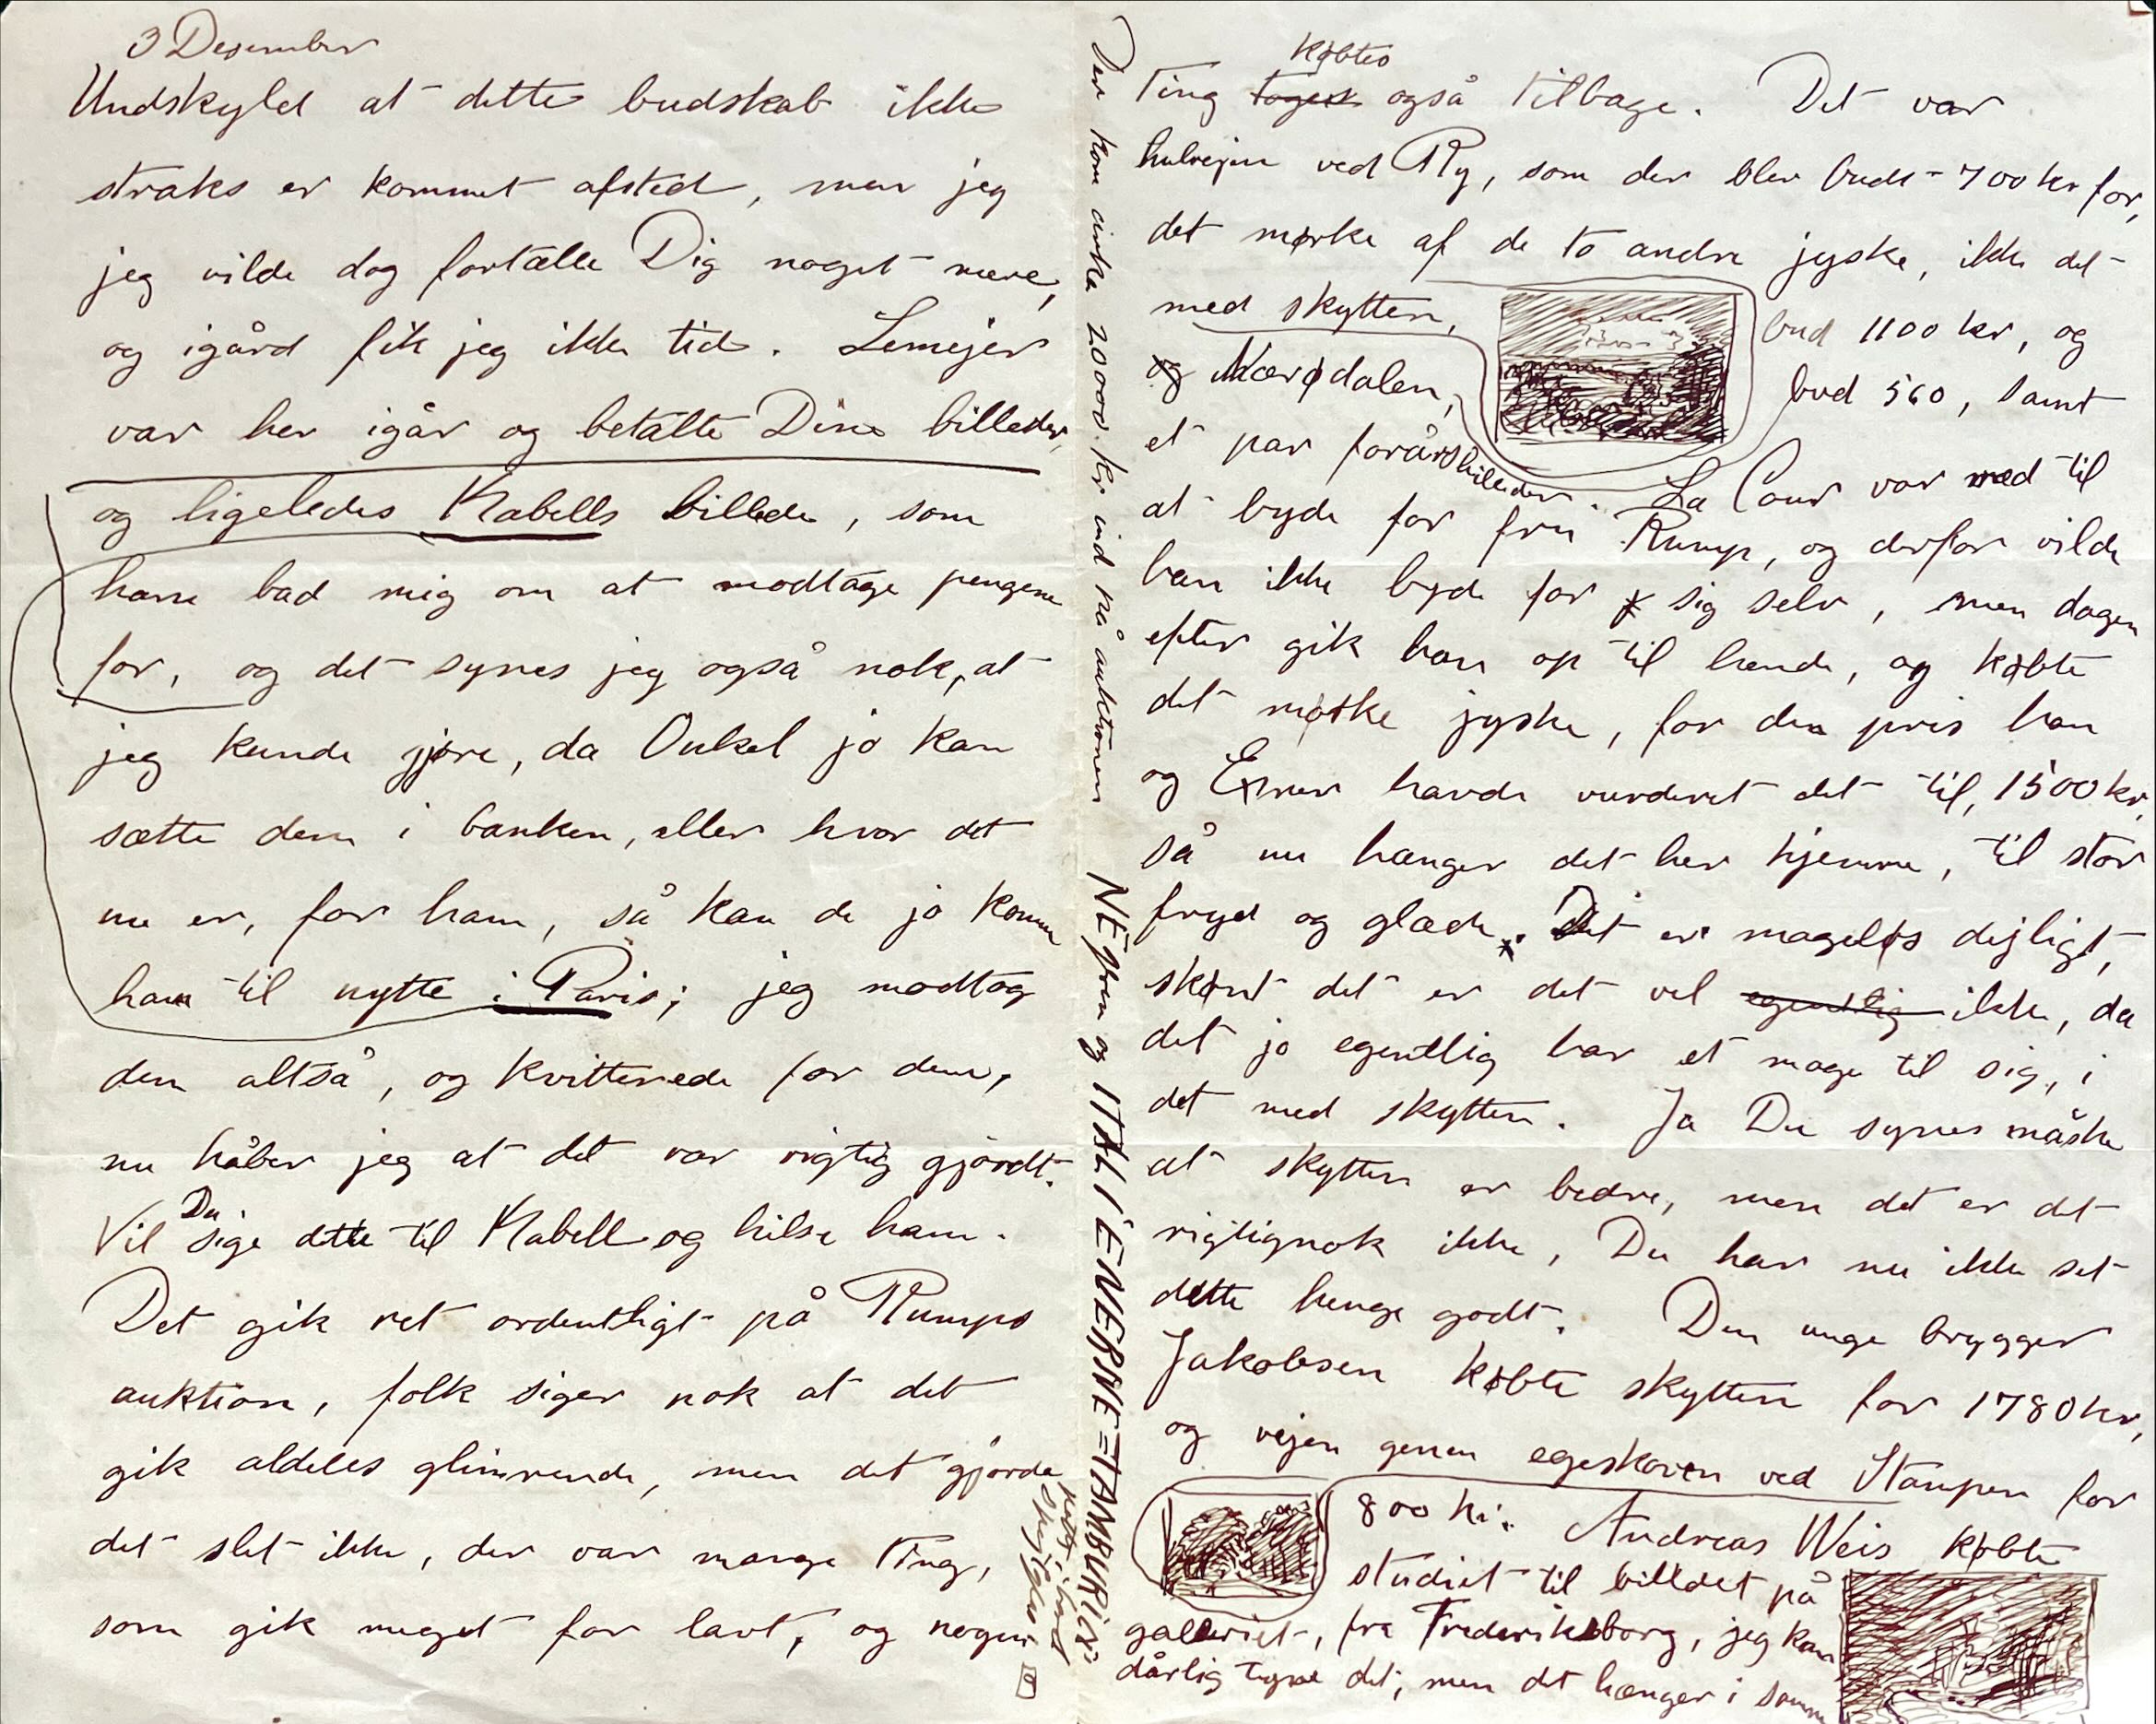 3 Desember
Undskyld at dette budskab ikke
straks er kommet afsted, men jeg
jeg vilde dog fortælle Dig noget mere,
og igård fik jeg ikke tid. Lemejer
var her igår og betalte Dine billeder,
og ligeledes Kabells billede, som
han bad mig om at modtage pengene
for, og det synes jeg også nok, at
jeg kunde gjøre, da Onkel jo kan
sætte dem i banken, eller hvor det
nu er, for ham, så kan de jo komme
ham til nytte i Paris; jeg modtog
dem altså, og kvitterede for dem,
nu håber jeg at det var rigtig gjordt.
Vil Du sige dette til Kabell og hilse ham.
Det gik ret ordentligt på Rumps
auktion, folk siger nok at det
gik aldeles glimrende, men det gjorde
det slet ikke, der var mange Ting,
som gik meget for lavt, og nogen
Der kom cirka 20000 kr ind på auktionen
NEgren og ITALIENERNE = TAMBURICA
Ting købtes også tilbage. Det var
hulvejen ved Ry, som der blev budt 700 kr for,
det mørke af de to andre jyske, ikke det
med skytten, bud 1100 kr, og
Nærødalen, bud 560, samt
et par forårsbilleder. La Cour var med til
at byde for fru Rump, og derfor vilde
han ikke byde for sig selv, men dagen
efter gik han op til hende, og købte
det mørke jyske, for den pris han
og Exner havde vurderet det til, 1500 kr,
så nu hænger det her hjemme, til stor
fryd og glæde. Det er mageløs dejligt,
skønt det er det vel egentlig ikke, da
det jo egentlig har et mage til sig, i
det med skytten. Ja Du synes måske
at skytten er bedre, men det er det
rigtignok ikke, Du har nu ikke set
dette henge godt. Den unge brygger
Jakobsen købte skytten for 1780 kr,
og vejen genem egeskoven ved Stampen for
800 kr. Andreas Weis købte
studiet til billdet på
galleriet, fra Frederiksborg, jeg kan
dårlig tegne det, men det hænger i samme